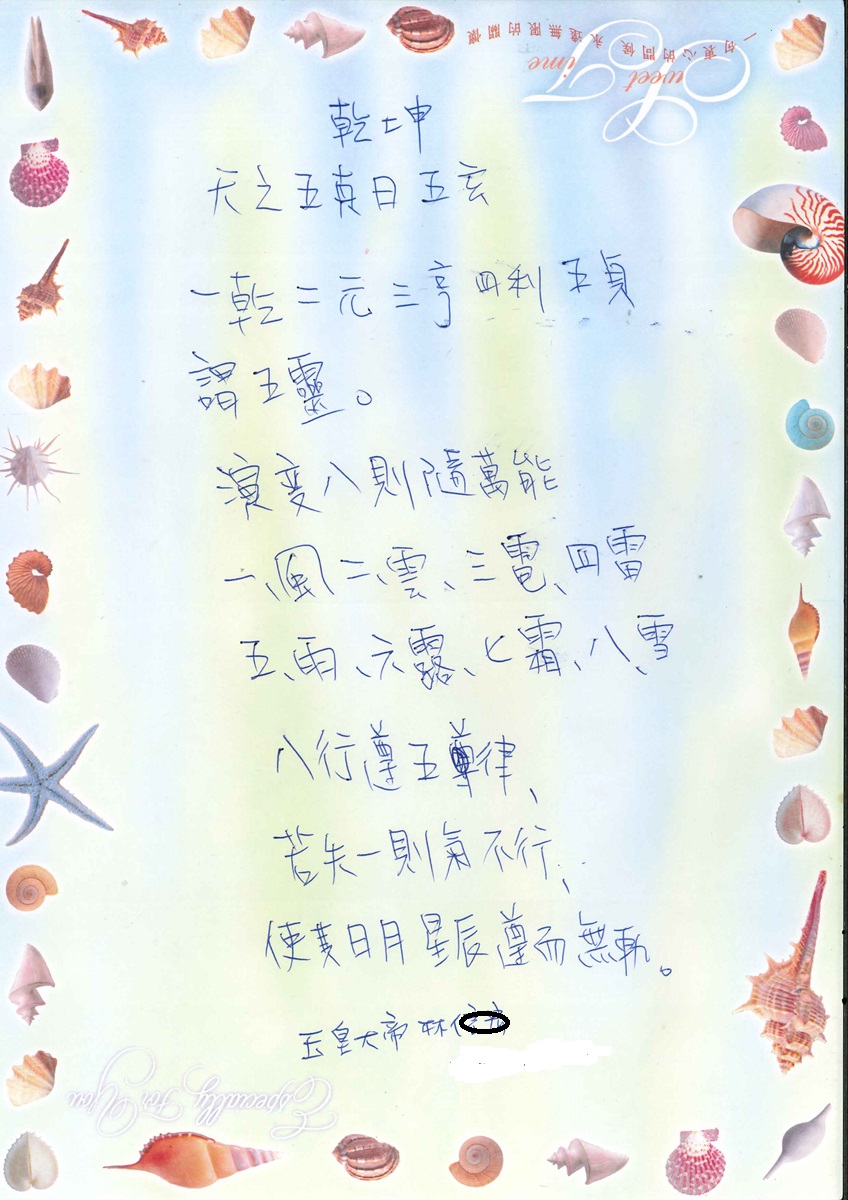 一句衷心的問候 永遠無限的關懷
Sweet Time
乾坤
天之五真日五玄
一乾二元三亨四利五貞
謂五靈。
演变八則隨萬能
一、風二、雲、三電、四雷
五、雨、六露、七霜、八、雪
八行遵五尊律、
苦失一則氣不行、
使其日月星辰遵而無軌。
玉皇大帝林
Especially For You